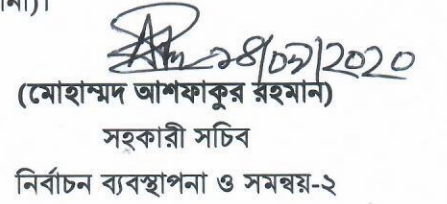 না)।
28/07/2020
(মোহাম্মদ আশফাকুর রহমান)
সহকারী সচিব
নির্বাচন ব্যবস্থাপনা ও সমন্বয়-২